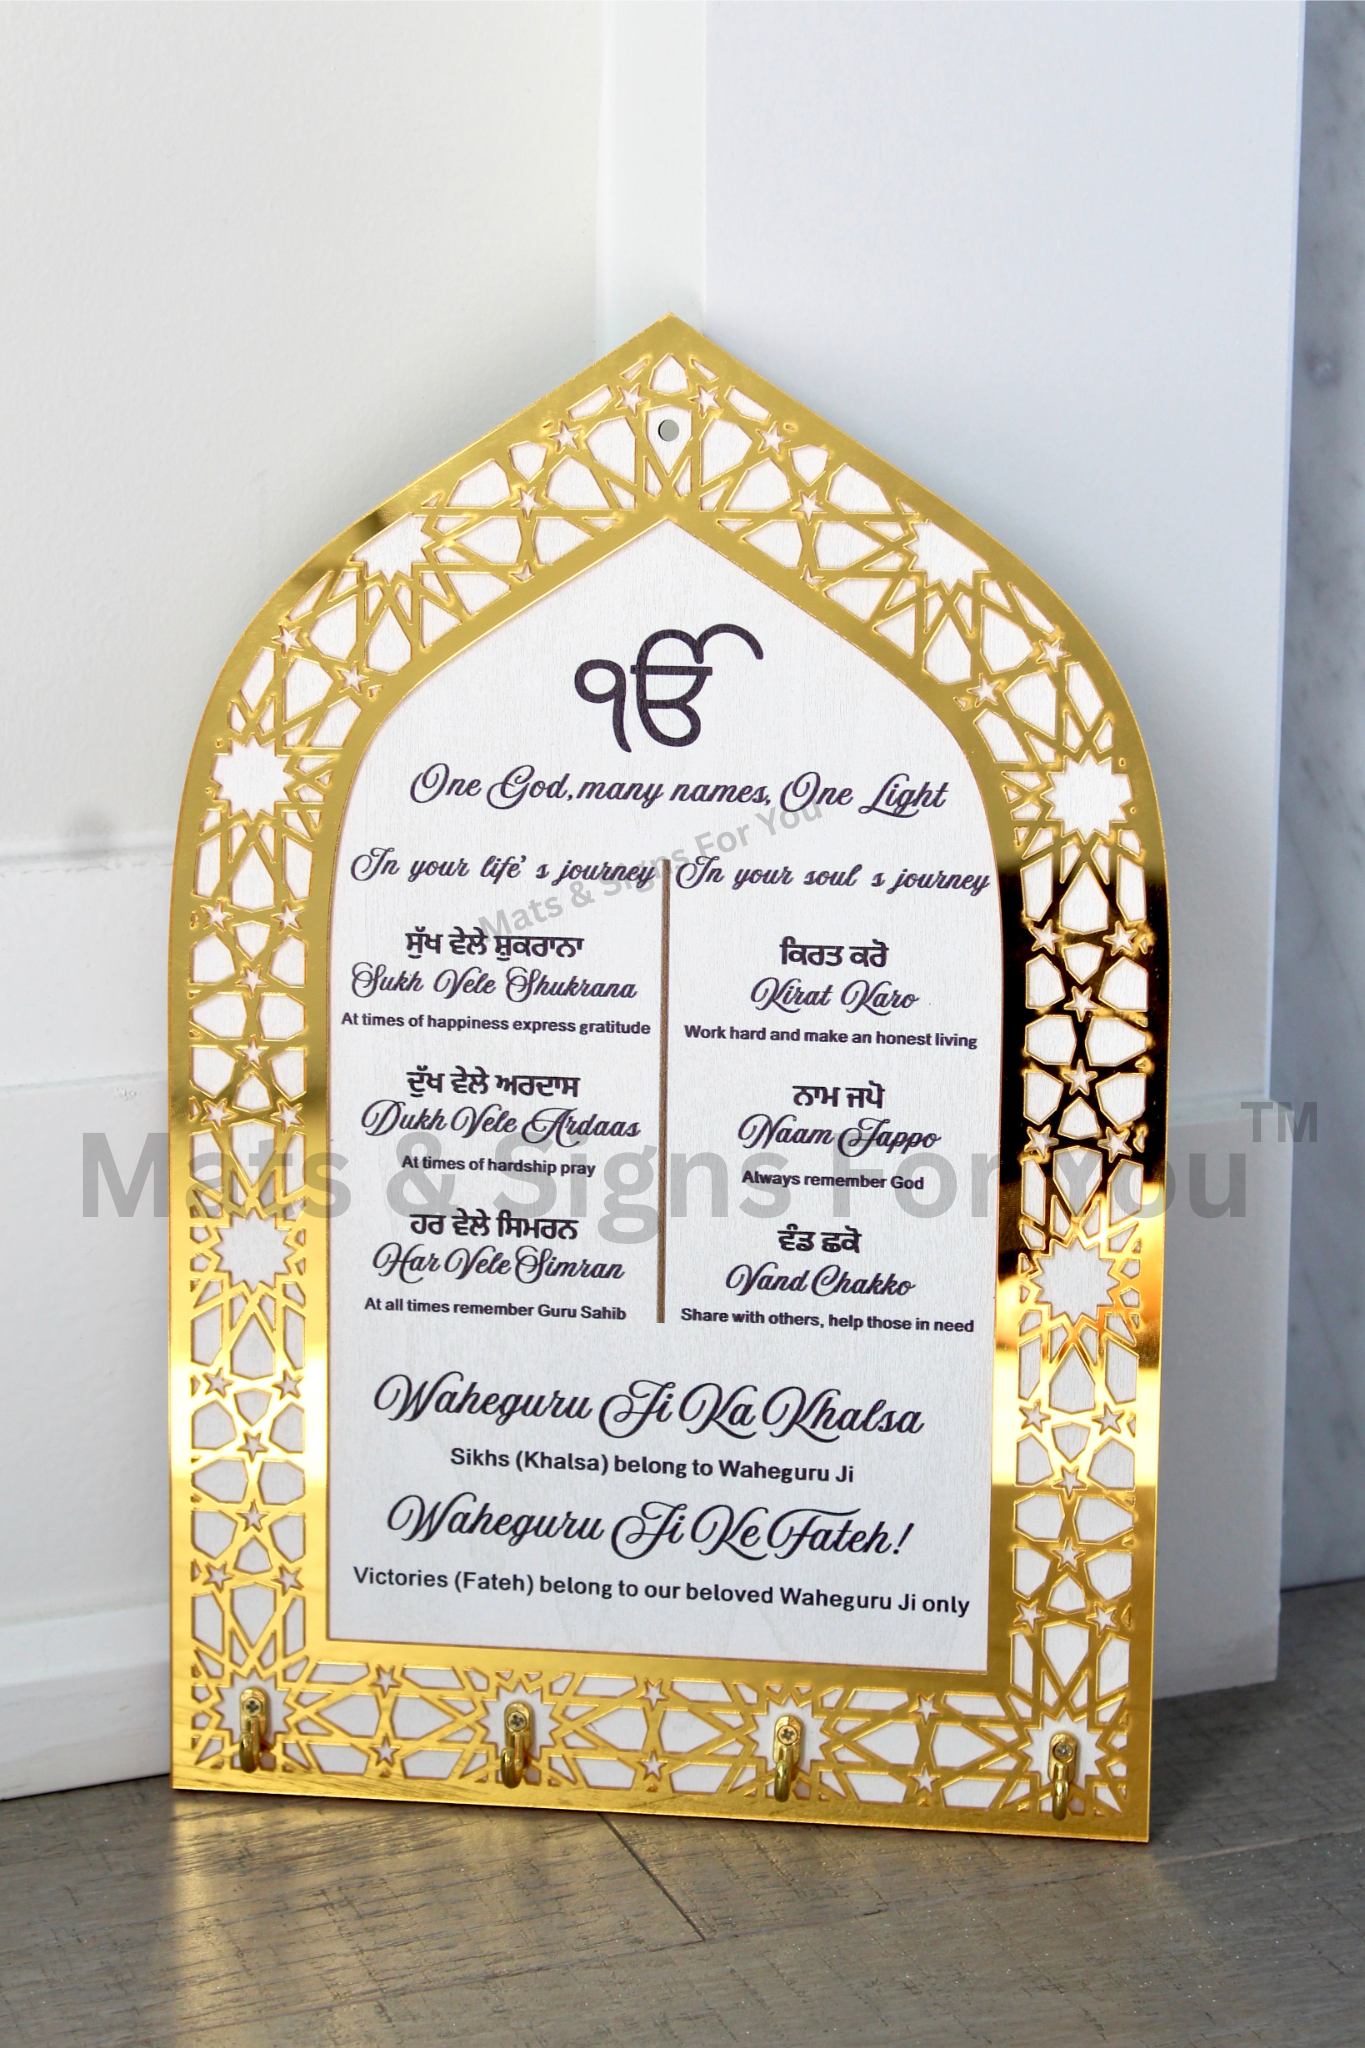 ੴ
One God, many names, One Light
In your life's journey
ਸੁੱਖ ਵੇਲੇ ਸ਼ੁਕਰਾਨਾ
Sukh Vele Shukrana
At times of happiness express gratitude
ਦੁੱਖ ਵੇਲੇ ਅਰਦਾਸ
Dukh Vele Ardaas
At times of hardship pray
ਹਰ ਵੇਲੇ ਸਿਮਰਨ
Har Vele Simran
At all times remember Guru Sahib
In your soul s journey
ਕਿਰਤ ਕਰੋ
Kirat Karo
Work hard and make an honest living
ਨਾਮ ਜਪੋ
Naam Jappo
Always remember God
ਵੰਡ ਛਕੋ
Vand Chakko
Share with others, help those in need
Waheguru Ji Ka Khalsa
Sikhs (Khalsa) belong to Waheguru Ji
Waheguru Ji Ke Fateh!
Victories (Fateh) belong to our beloved Waheguru Ji only
Mats & Signs For You
Mats & Signs For You™